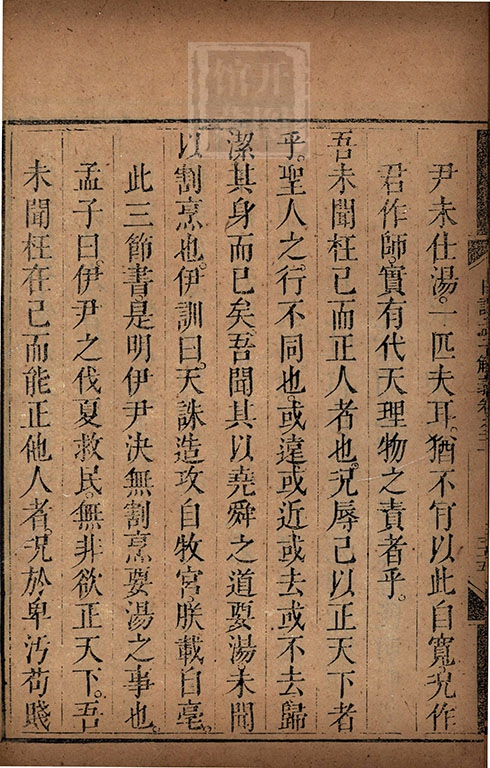 尹未仕湯。一匹夫耳。猶不肎以此自寬。況作
君作師。實有代天理物之責者乎。
吾未聞枉己而正人者也。況辱己以正天下者
乎。聖人之行不同也。或遠或近或去或不去歸
潔其身而已矣。吾聞其以堯舜之道要湯。未聞
以割烹也。伊訓曰。天誅造攻自牧宮。朕載自亳。
此三節書。是明伊尹決無割烹要湯之事也。
孟子曰。伊尹之伐夏救民。無非欲正天下。吾
未聞枉在己而能正他人者。況於卑汚苟賤